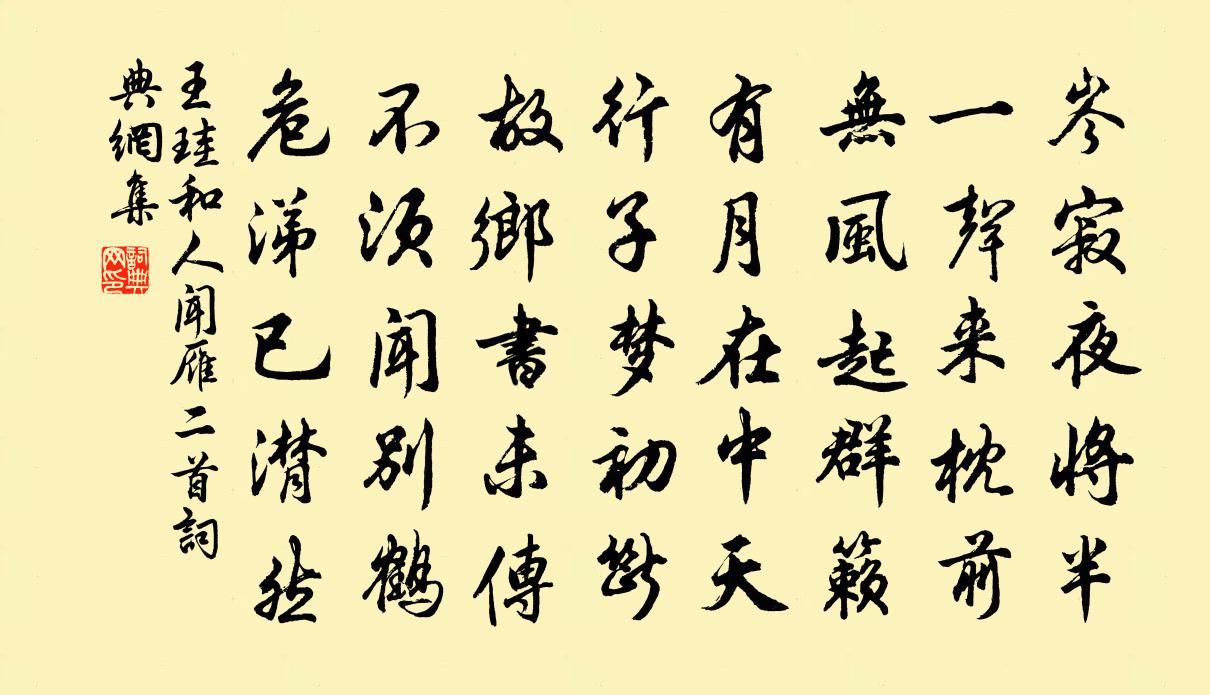 岑寂夜將半
一聲来枕前
無風起群籟
有月在中天
行子梦初斷
故鄉書未傳
不須聞別鶴
危涕已潸然
王珪和人聞雁二首詞
典網集
詞典
网印